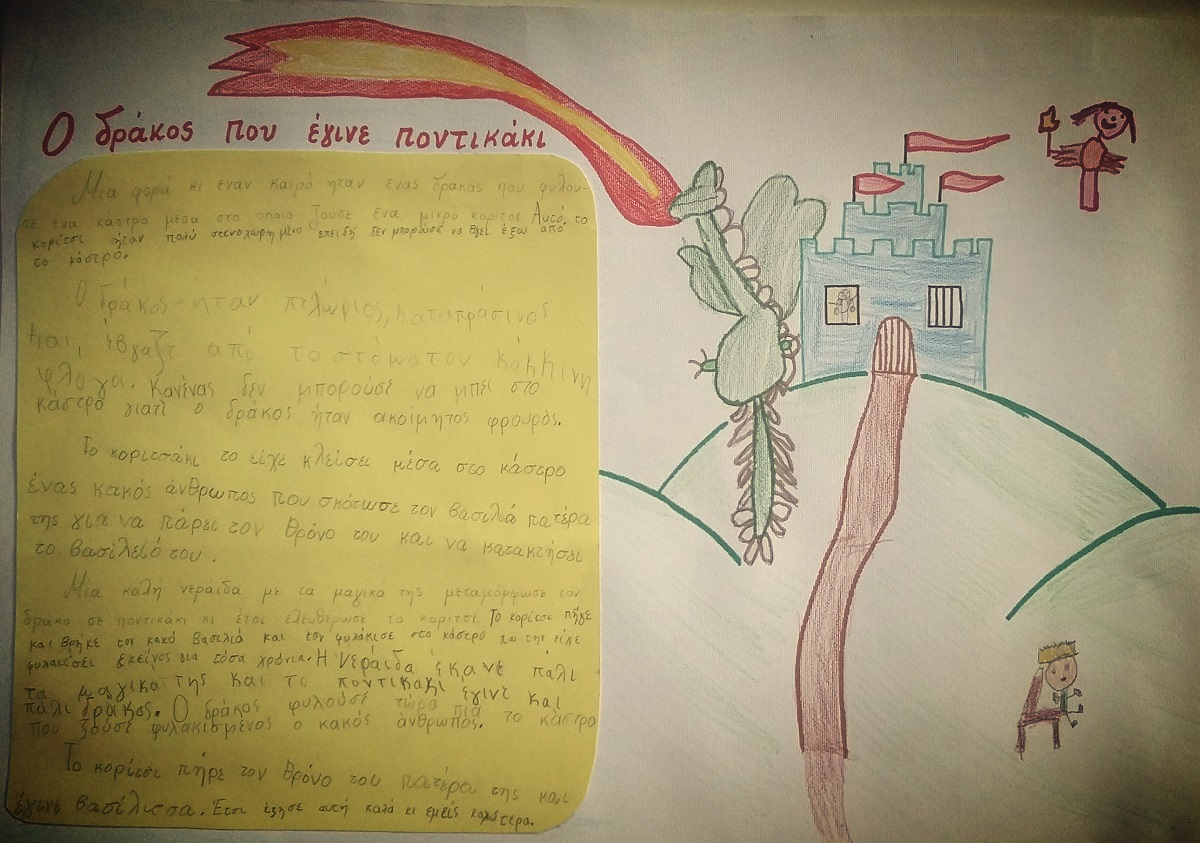 Ο δράκος που έγινε ποντικάκι
Μια φορά κι έναν καιρό ήταν ένας δράκος που φυλού-
σε ένα κάστρο μέσα στο οποίο ζούσε ένα μικρό κορίτσι. Αυτό το
κορίτσι ήταν πολύ στενοχωρημένο επειδή δεν μπορούσε να βγεί έξω από
το κάστρο.
Ο δράκος ήταν πελώριος, καταπράσινος
και έβγαζε από το στόμα του κόκκινη
φλόγα. Κανένας δεν μπορούσε να μπεί στο
κάστρο γιατί ο δράκος ήταν ακοίμητος φρουρός.
Το κοριτσάκι το είχε κλείσει μέσα στο κάστρο
ένας κακός άνθρωπος που σκότωσε τον βασιλιά πατέρα
της για να πάρει τον θρόνο του και να κατακτήσει
το βασίλειό του.
Μια καλή νεράιδα με τα μαγικά της μεταμόρφωσε τον
δράκο σε ποντικάκι κι έτσι ελευθέρωσε το κορίτσι. Το κορίτσι πήγε
και βρήκε τον κακό βασιλιά και τον φυλάκισε στο κάστρο που την είχε
φυλακίσει εκείνος για τόσα χρόνια. Η νεράιδα έκανε πάλι
τα μαγικά της και το ποντικάκι έγινε και
πάλι δράκος. Ο δράκος φυλούσε τώρα πια το κάστρο
που ζούσε φυλακισμένος ο κακός άνθρωπος.
Το κορίτσι πήρε τον θρόνο του πατέρα της και
έγινε βασίλισσα. Έτσι έζησε αυτή καλά κι εμείς καλύτερα.